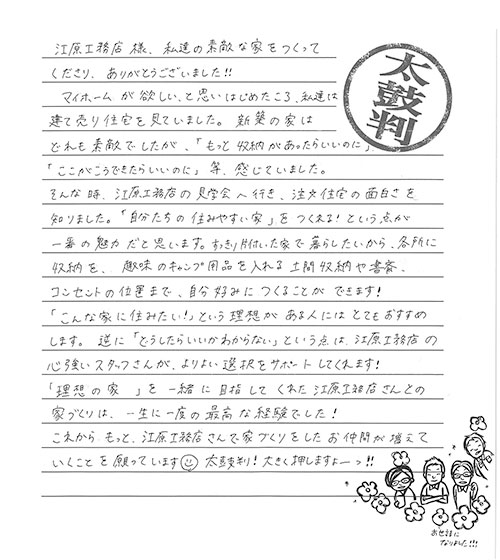 江原工務店様、私達の素敵な家をつくって
くださり、ありがとうございました!!
マイホームが欲しい、と思いはじめたころ、私達は
建て売り住宅を見ていました。新築の家は
どれも素敵でしたが、「もっと収納があったらいいのに」、
「ここがこうできたらいいのに」等、感じていました。
そんな時、江原工務店の見学会へ行き、注文住宅の面白さを
知りました。「自分たちの住みやすい家」をつくれる!という点が
一番の魅力だと思います。すっきり片付いた家で暮らしたいから、各所に
収納を、趣味のキャンプ用品を入れる土間収納や書斎、
コンセントの位置まで、自分好みにつくることができます!
「こんな家に住みたい!」という理想がある人にはとてもおすすめ
します。逆に「どうしたらいいかわからない」という点は、江原工務店の
心強いスタッフさんが、よりよい選択をサポートしてくれます!
「理想の家」を一緒に目指してくれた江原工務店さんとの
家づくりは、一生に一度の最高な経験でした!
これからもっと、江原工務店さんで家づくりをしたお仲間が増えて
いくことを願っています 太鼓判!大きく押しますよーっ!!
太鼓判
お世話に
なりました!!!